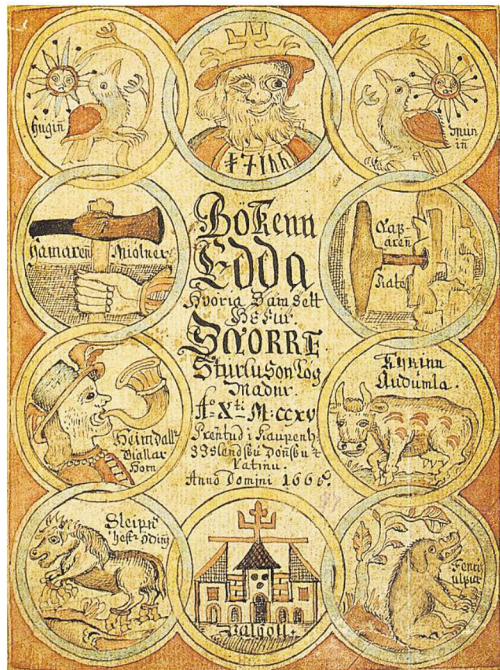 Hugin
Munin
Hamaren Miølner
Bókenn
Edda
Hvória Samsett
Hefur
SNORRE
Sturluson Lög
Madur.
Ao Xti M:ccxv
Prentud i Kaupenh
Islendsku Donsku &
Latinu.
Anno Domini 1666.
Nafaren
Rate
Heimdall
Giallar
Horn
Kyrinn
Audumla.
Sleipn
hestr Odins
Valholl.
Fenris
ulfur